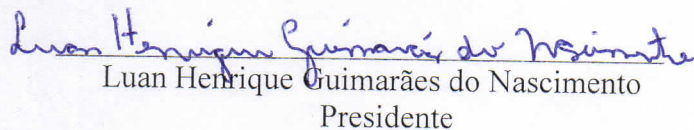 Luan Henrique Guimarães do Nascimento
Luan Henrique Guimarães do Nascimento
Presidente